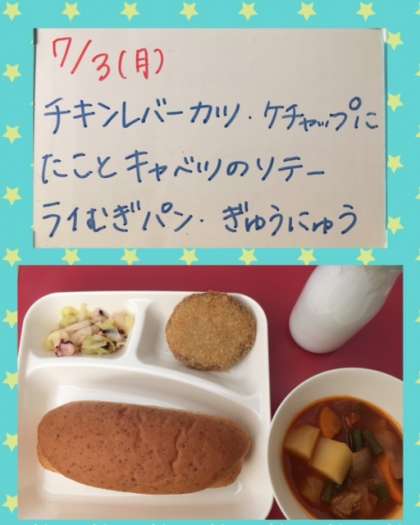 7/3(月)
チキンレバーカツ・ケチャップに
たことキャベツのソテー
ライむぎパン・ぎゅうにゅう